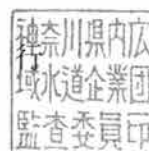 神奈川県内広
域水道企業団
監査委員印